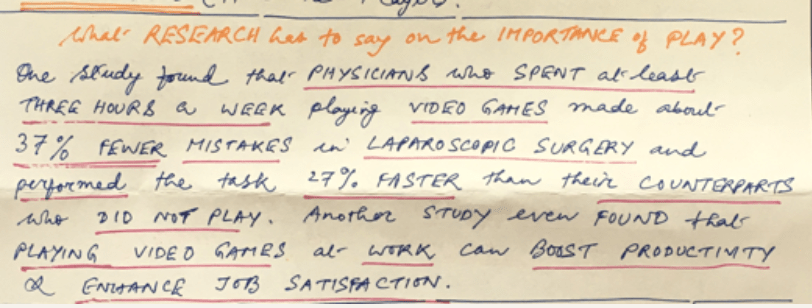 What RESEARCH has to say on the IMPORTANCE of PLAY?
One study found that PHYSICIANS who SPENT at least
THREE HOURS a WEEK playing VIDEO GAMES made about
37% FEWER MISTAKES in LAPAROSCOPIC SURGERY and
performed the task 27% FASTER than their COUNTERPARTS
who DID NOT PLAY. Another STUDY even FOUND that
PLAYING VIDEO GAMES at WORK can BOOST PRODUCTIVITY
& ENHANCE JOB SATISFACTION.